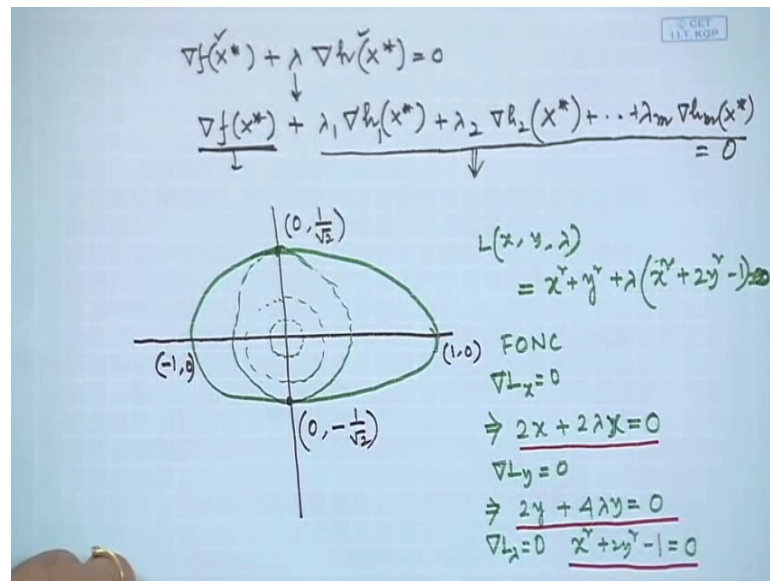 © CET
I.I.T. KGP
∇f(x*) + λ ∇h(x*) = 0
↓
∇f(x*) + λ₁∇h₁(x*) + λ₂ ∇h₂(x*) + ... + λₘ ∇hₘ(x*)
= 0
(0, 1/√2)
(-1,0)
(1,0)
(0, -1/√2)
L(x, y, λ)
= x² + y² + λ(x² + 2y² - 1)
FONC
∇Lₓ = 0
⇒ 2x + 2λx = 0
∇Ly = 0
⇒ 2y + 4λy = 0
∇L_λ = 0 x² + 2y² - 1 = 0